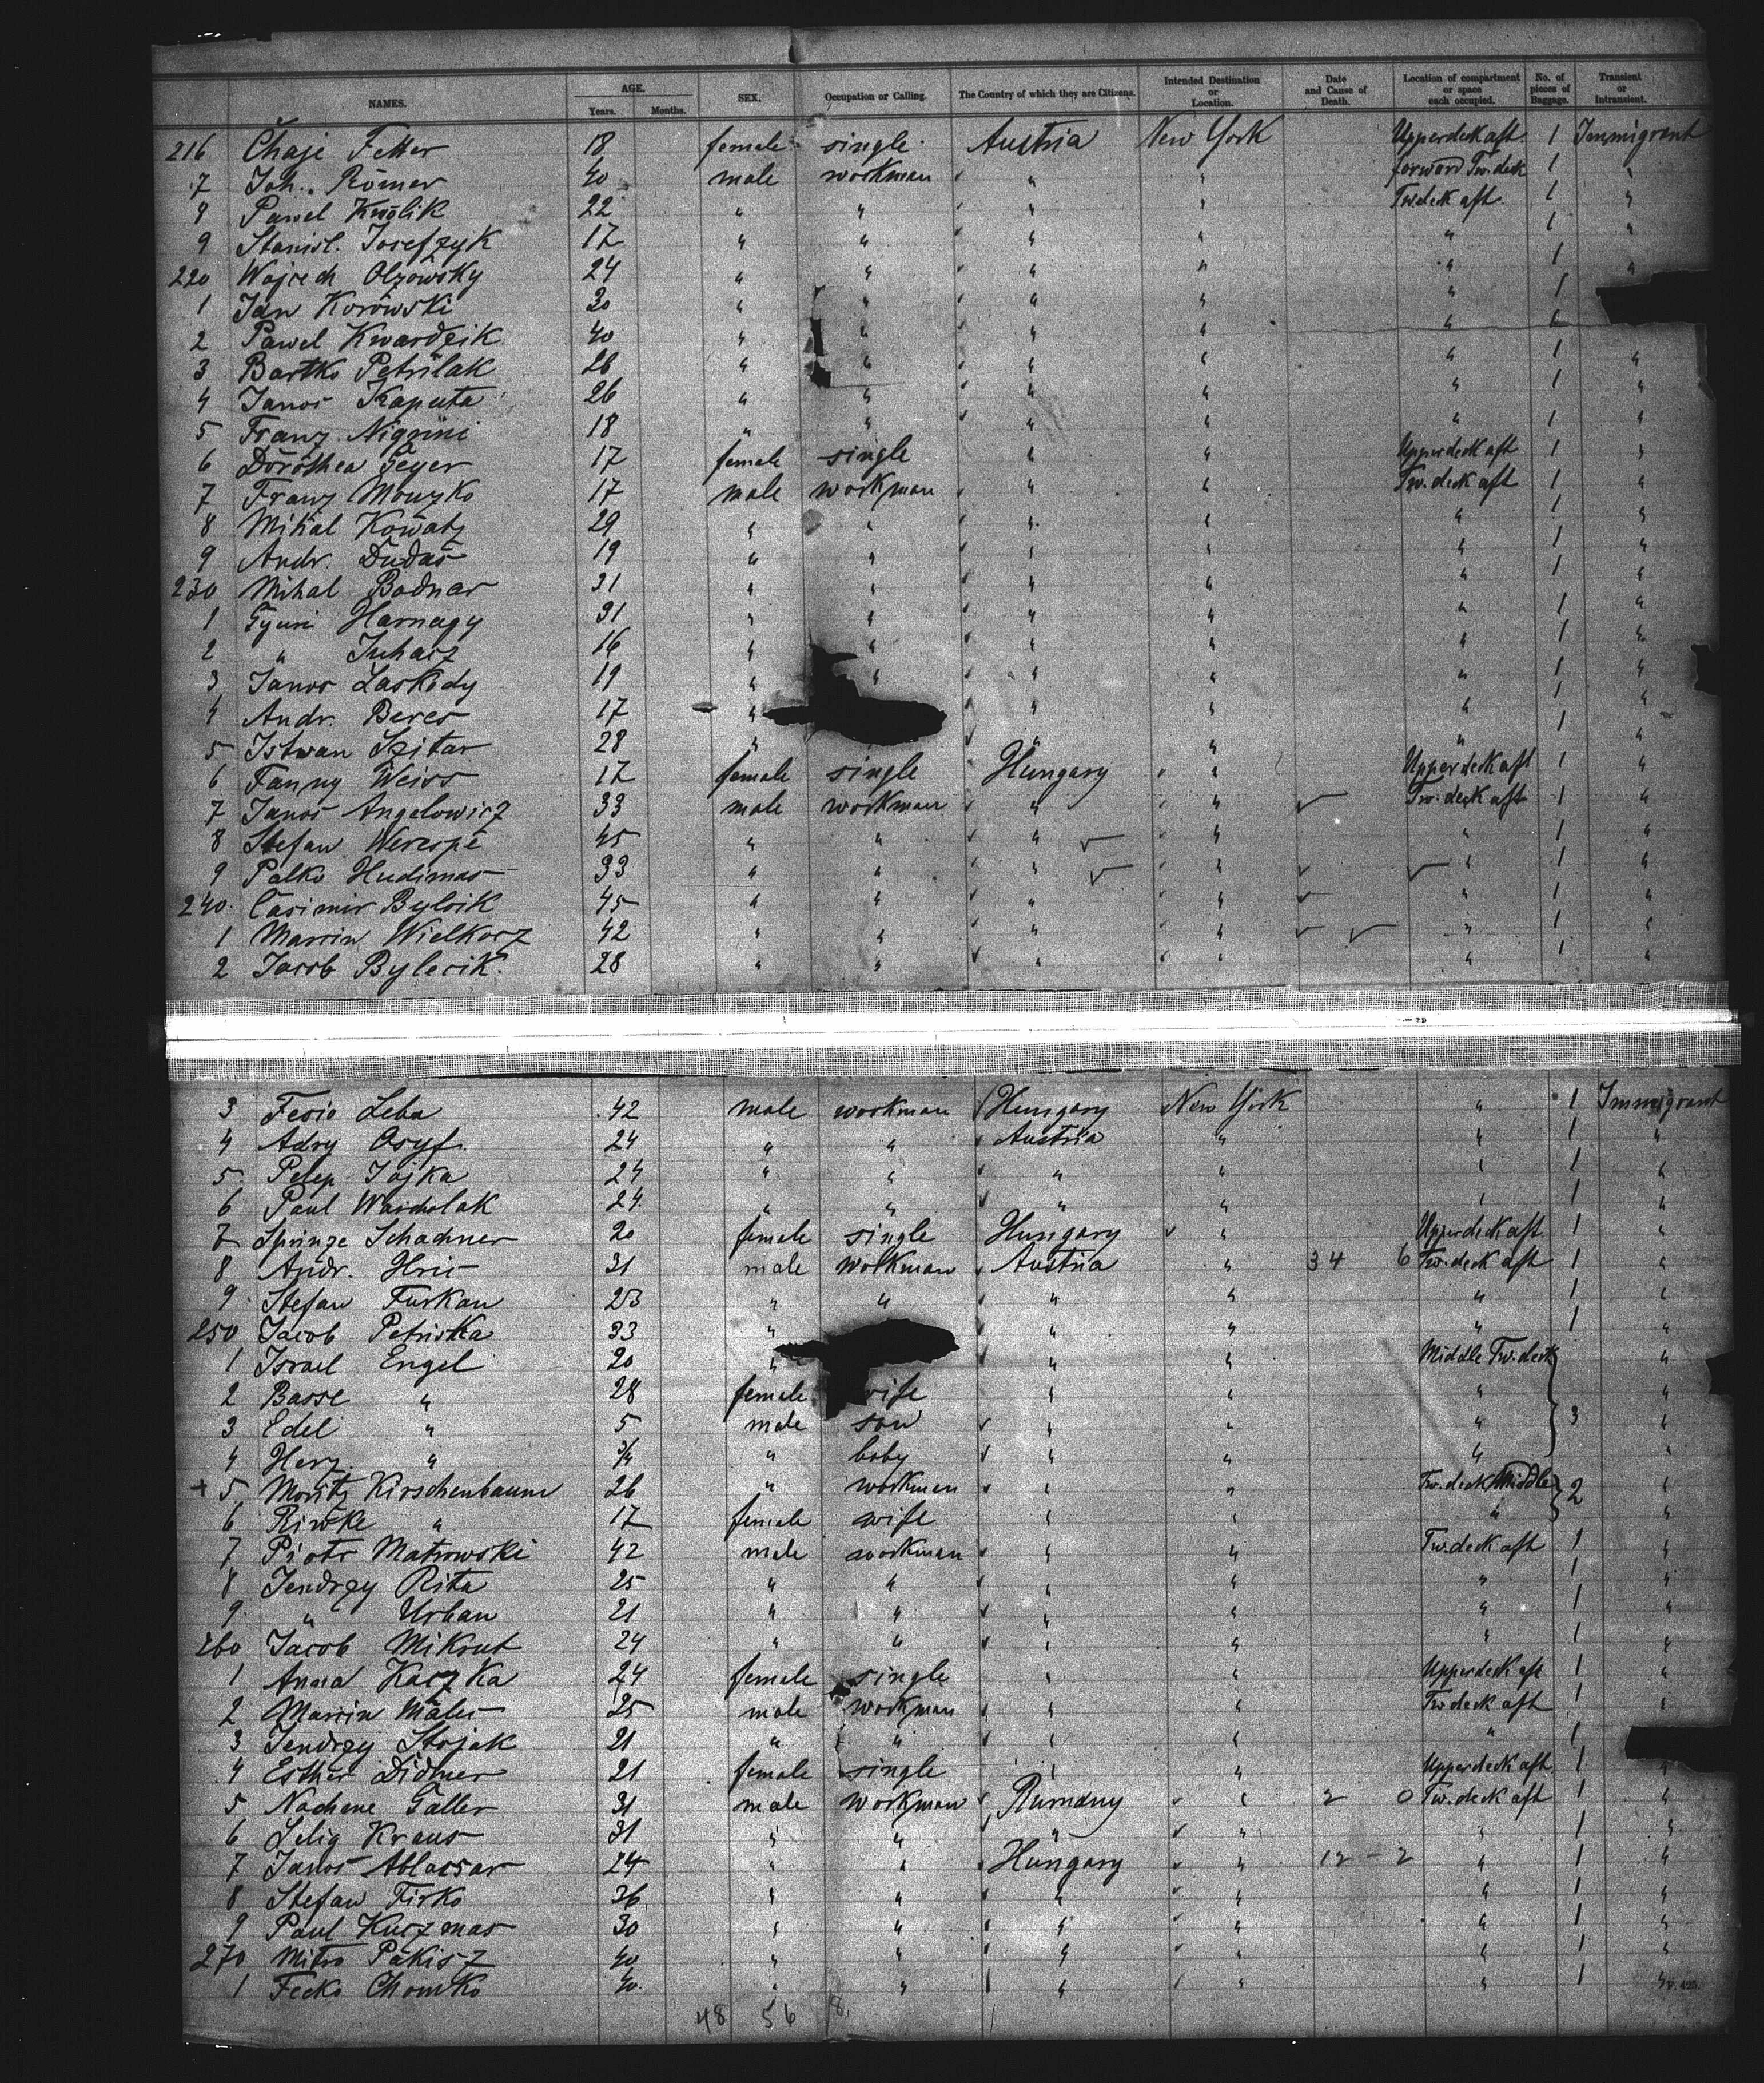 NAMES. AGE. Years. Months. SEX. Occupation or Calling. The Country of which they are Citizens. Intended Destination or Location. Date and Cause of Death. Location of compartment or space each occupied. No. of pieces of Baggage. Transient or Intransient.
216 Chaje Fetter 18 female single Austria New York Upperdeck aft 1 Immigrant
7 Joh. Römer 40 male workman " " forword Tw. deck 1 "
8 Pawel Królik 22 " " " " Tw. deck aft 1 "
9 Stanisl. Josefzyk 17 " " " " " 1 "
220 Wojcech Olzowsky 24 " " " " " 1 "
1 Jan Korowski 30 " " " " " 1
2 Pawel Kwardzik 40 " " " " " 1
3 Bartko Petrilak 26 " " " " " 1 "
4 Janos Kaputa 26 " " " " " 1 "
5 Franz 18 " " " " " 1 "
6 Dorothea Geyer 17 female single " " Upperdeck aft 1 "
7 Franz Mouzko 17 male workman " " Tw. deck aft 1 "
8 Mihal Kowatz 29 " " " " " 1 "
9 Andr. Dudas 19 " " " " " 1 "
230 Mihal Bodnar 31 " " " " " 1 "
1 Gyuri Harnagy 31 " " " " " 1 "
2 " Juhasz 16 " " " " " 1 "
3 Janos Laskody 19 " " " " " 1 "
4 Andr. Beres 17 " " " " 1 "
5 Istwan Szitar 28 " " " " 1 "
6 Fanny Weiss 17 female single Hungary " Upperdeck aft 1 "
7 Janos Angelowicz 33 male workman " " Tw. deck aft 1 "
8 Stefan Werespe 45 " " " " " 1 "
9 Palko Hudimas 33 " " " " " 1 "
240 Casimir Bylsik 45 " " " " " 1 "
1 Marcin Wielkosz 42 " " " " " 1 "
2 Jacob Bylecik 28 " " " " " 1 "
3 Fesio Leba 42 male workman Hungary New York " 1 Immigrant
4 Adry Osyf 24 " " Austria " " 1 "
5 Pelep Jojka 24 " " " " " 1 "
6 Paul Wascholak 24 " " " " " 1 "
7 Sprinze Schachner 20 female single Hungary " Upperdeck aft 1 "
8 Andr. Hris 31 male workman Austria " 34 6 Tw. deck aft 1 "
9 Stefan Furkan 23 " " " " " 1 "
250 Jacob Petriska 33 " " " " 1 "
1 Israel Engel 20 " " " Middle Tw. deck "
2 Basse " 28 female wife " " " "
3 Edel " 5 male son " " " 3 "
4 Herz " 3/4 " baby " " " "
+ 5 Moritz Kirschenbaum 26 " workman " " Tw. deck Middle 2 "
6 Riwke " 17 female wife " " " "
7 Piotr Matrowski 42 male workman " " Tw. deck aft 1 "
8 Jendrzy Rita 25 " " " " " 1 "
9 " Urban 21 " " " " " 1 "
260 Jacob Mikrut 24 " " " " " 1 "
1 Anna Kaczka 24 female single " " Upperdeck aft 1 "
2 Marcin Males 25 male workman " " Tw. deck aft 1 "
3 Jendrzy Stojak 21 " " " " " 1
4 Esther Didner 21 female single " " Upperdeck aft 1 "
5 Nachene Galler 31 male workman Rumany " 2 0 Tw. deck aft 1 "
6 Selig Kraus 31 " " " " " 1 "
7 Janos Ablassar 24 " " Hungary " 12 - 2 " 1 "
8 Stefan Firko 36 " " " " " 1 "
9 Paul Kuczmas 30 " " " " " 1 "
270 Mitro Pakisz 40 " " " " " 1 "
1 Fecko Chomko 40 " " " " " 1 "
48 56 8